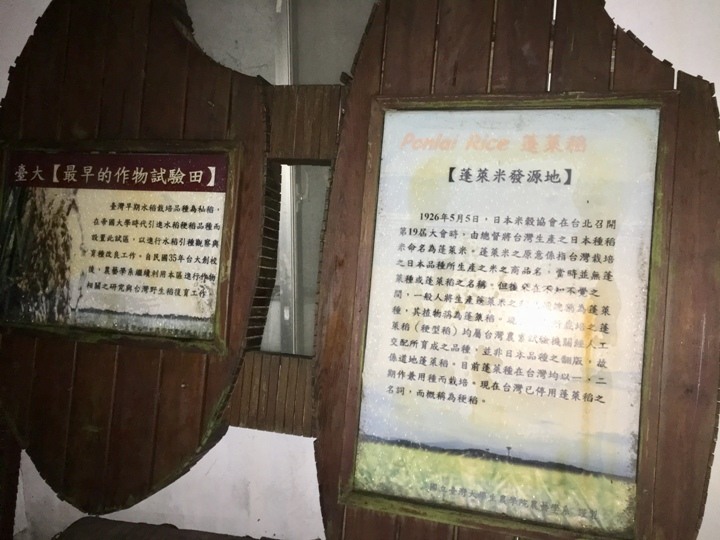 臺大【最早的作物試驗田】
臺灣早期水稻栽培品種為秈稻,
在帝國大學時代引進水稻梗稻品種而
設置此試區,以進行水稻引種觀察與
育種改良工作。自民國35年台大創校
後,農藝學系繼續利用本區進行作物
相關之研究與台灣野生稻復育工作。
Ponlai Rice 蓬萊稻
【蓬萊米發源地】
1926年5月5日,日本米穀協會在台北召開
第19屆大會時,由總督將台灣生產之日本種稻
米命名為蓬萊米。蓬萊米之原意係指台灣栽培
之日本品種所生產之米之商品名,當時並無蓬
萊種或蓬萊稻之名稱,但後來在不知不覺之
間,一般人將生產蓬萊米之稱為蓬萊
種,其植物稱為蓬萊稻。之蓬
萊稻(粳型稻)均屬台灣農業試驗機關經人工
交配所育成之品種,並非日本品種之翻版,故
係道地蓬萊稻。目前蓬萊種在台灣均以一、二
期作兼用種而栽培。現在台灣已停用蓬萊稻之
名詞,而概稱為梗稻。
國立臺灣大學生農學院農藝學系